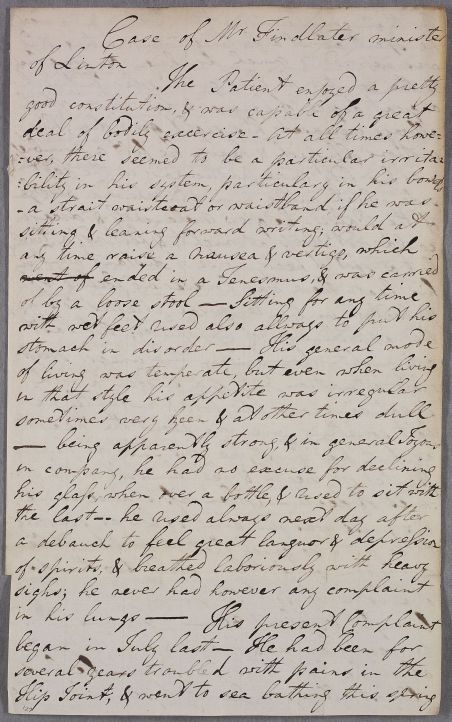 Case of Mr Findlater minister
of Linton
The Patient enjoyed a pretty
good constitution, & was capable of a great
deal of bodily excercise - At all times howe-
:ver, there seemed to be a particular irrita:
:bility in his system, particulary in his bowels
- a strait waistcoat or waistband if he was
sitting & leaning forward writing, would at
any time raise a nausea & vertigo, which
went of ended in a Tenesmus, & was carried
of by a loose stool — Sitting for any time
with wet feet used also allways to put his
stomach in disorder — His general mode
of living was temperate, but even when living
in that style his appetite was irregular
sometimes very keen & at other times dull
— being apparently strong, & in general
in company, he had no excuse for declining
his glass, when over a bottle, & used to sit with
the last -- he used always next day after
a debauch to feel great languor & depression
of spirits, & breathed laboriously with heavy
sighs; he never had however any complaint
in his lungs — His present Complaint
began in July last — He had been for
several years troubled with pains in the
Hip Joint, & went to sea bathing this spring